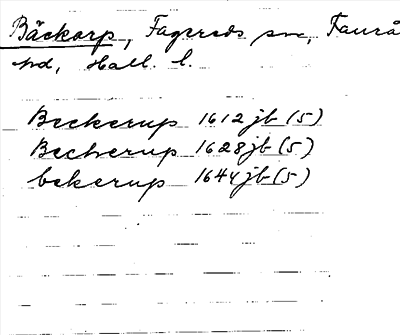 Bäckarp, Fagereds sn, Faurå
hd, Hall. l.
Beckerup 1612 jb (5)
Beckerup 1628 jb (5)
bekerup 1644 jb (5)